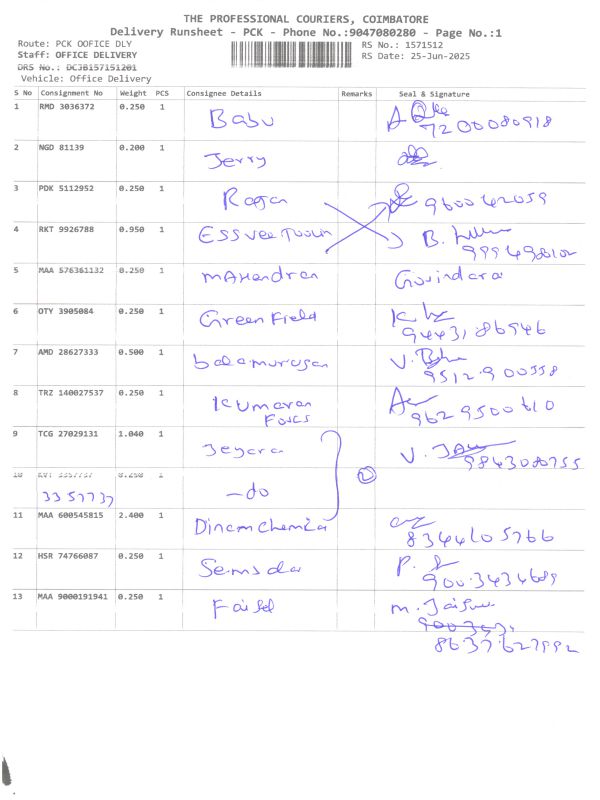 THE PROFESSIONAL COURIERS, COIMBATORE
Delivery Runsheet - PCK - Phone No.:9047080280 - Page No.:1
Route: PCK OOFICE DLY RS No.: 1571512
Staff: OFFICE DELIVERY RS Date: 25-Jun-2025
DRS No.: DCJB157151201
Vehicle: Office Delivery
S No Consignment No Weight PCS Consignee Details Remarks Seal & Signature
1 RMD 3036372 0.250 1 Babu
7200080918
2 NGD 81139 0.200 1 Jerry
3 PDK 5112952 0.250 1 Raja 9600642059
4 RKT 9926788 0.950 1 ESSvee
5 MAA 576361132 0.250 1 mahendran Govindara
6 OTY 3905084 0.250 1 Green Field
94431 86546
7 AMD 28627333 0.500 1 balamurugan
8 TRZ 140027537 0.250 1 Kumaran
9629500610
9 TCG 27029131 1.040 1 Jeyara
9843080755
10 KVT 3357737 0.250 1 - do
3357737
11 MAA 600545815 2.400 1 Dinamchemica
8344105766
12 HSR 74766087 0.250 1
13 MAA 9000191941 0.250 1 Faisal
8637627992